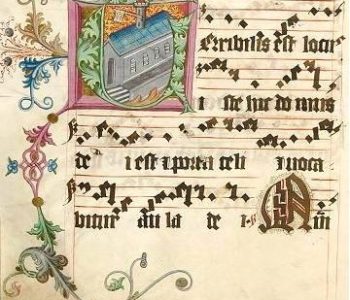 Teribilis est locus
i ste hic do mus
de i est ⁊ porta celi ⁊ voca
bitur au la de i